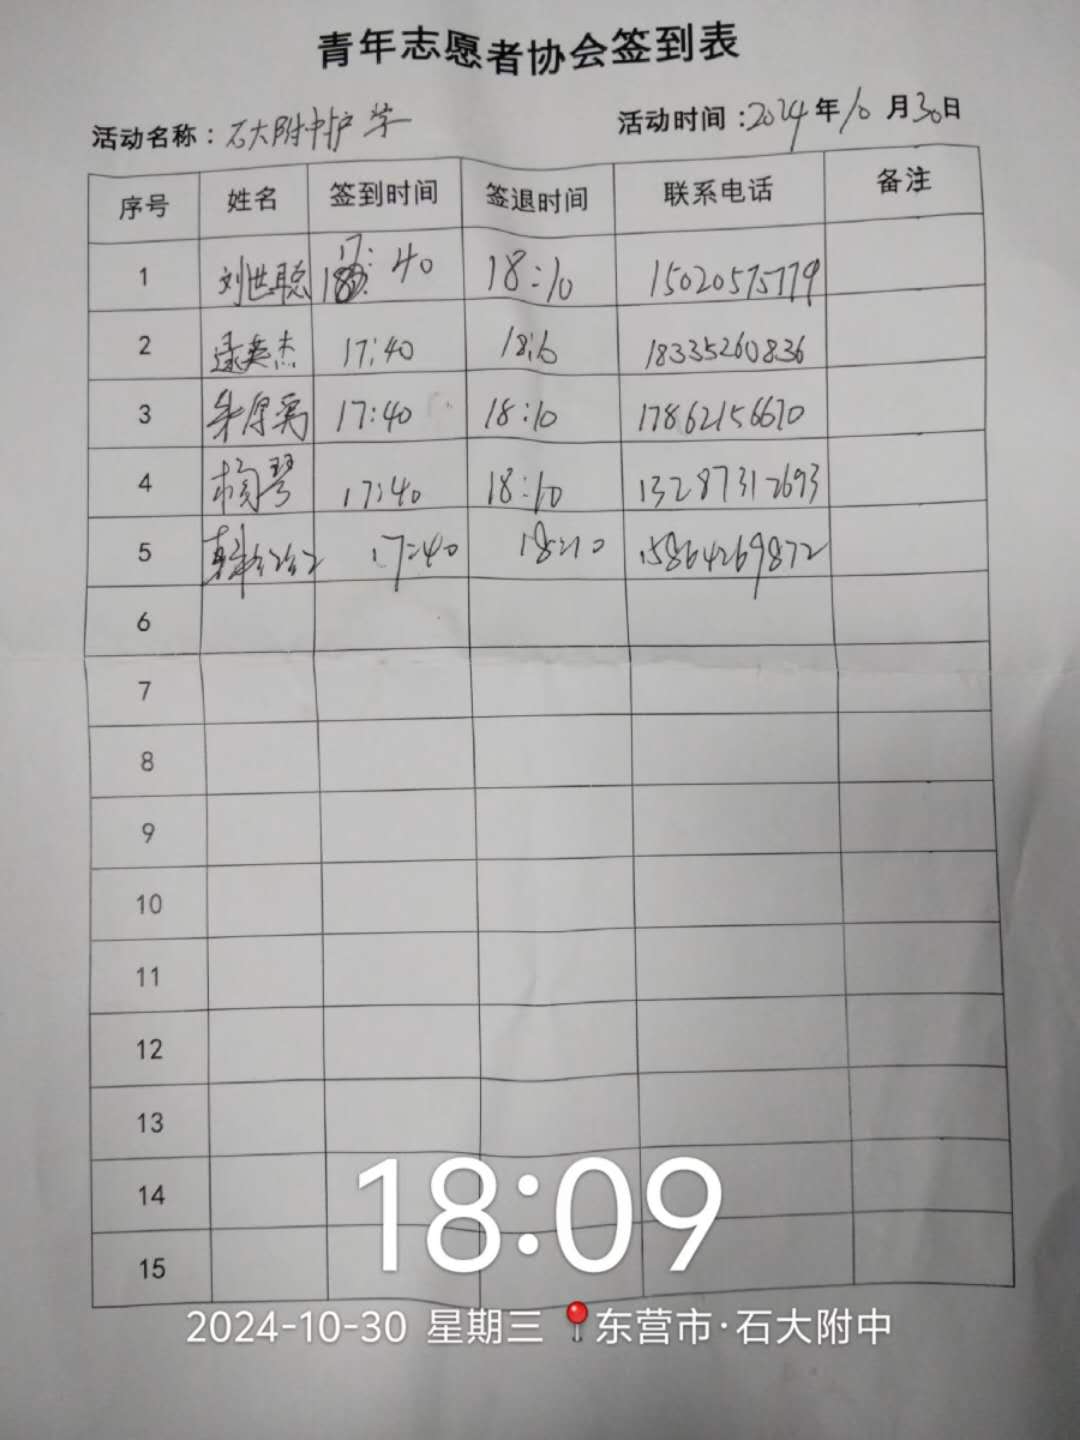 青年志愿者协会签到表
活动名称：石大附中护学 活动时间：2024年10月30日
序号 姓名 签到时间 签退时间 联系电话 备注
1 刘世聪 17:40 18:10 15020575779
2 英杰 17:40 18:10 18335260836
3 朱厚 17:40 18:10 17862156670
4 琴 17:40 18:10 13287312693
5 韩红红 17:40 18:10 15864269872
6
7
8
9
10
11
12
13
14
15
18:09
2024-10-30 星期三 东营市·石大附中